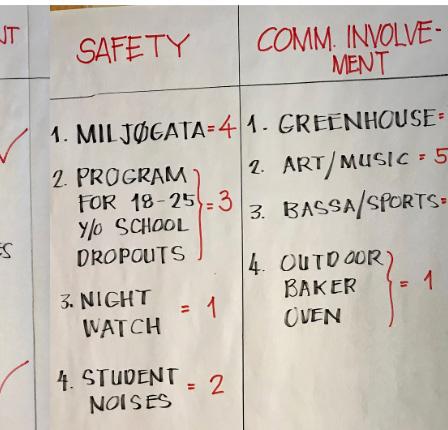 NT
ES
SAFETY
1. MILJØGATA = 4
2. PROGRAM
FOR 18-25
Y/O SCHOOL
DROPOUTS } = 3
3. NIGHT
WATCH = 1
4. STUDENT
NOISES = 2
COMM. INVOLVE-
MENT
1. GREENHOUSE =
2. ART/MUSIC = 5
3. BASSA/SPORTS =
4. OUTDOOR
BAKER
OVEN } = 1